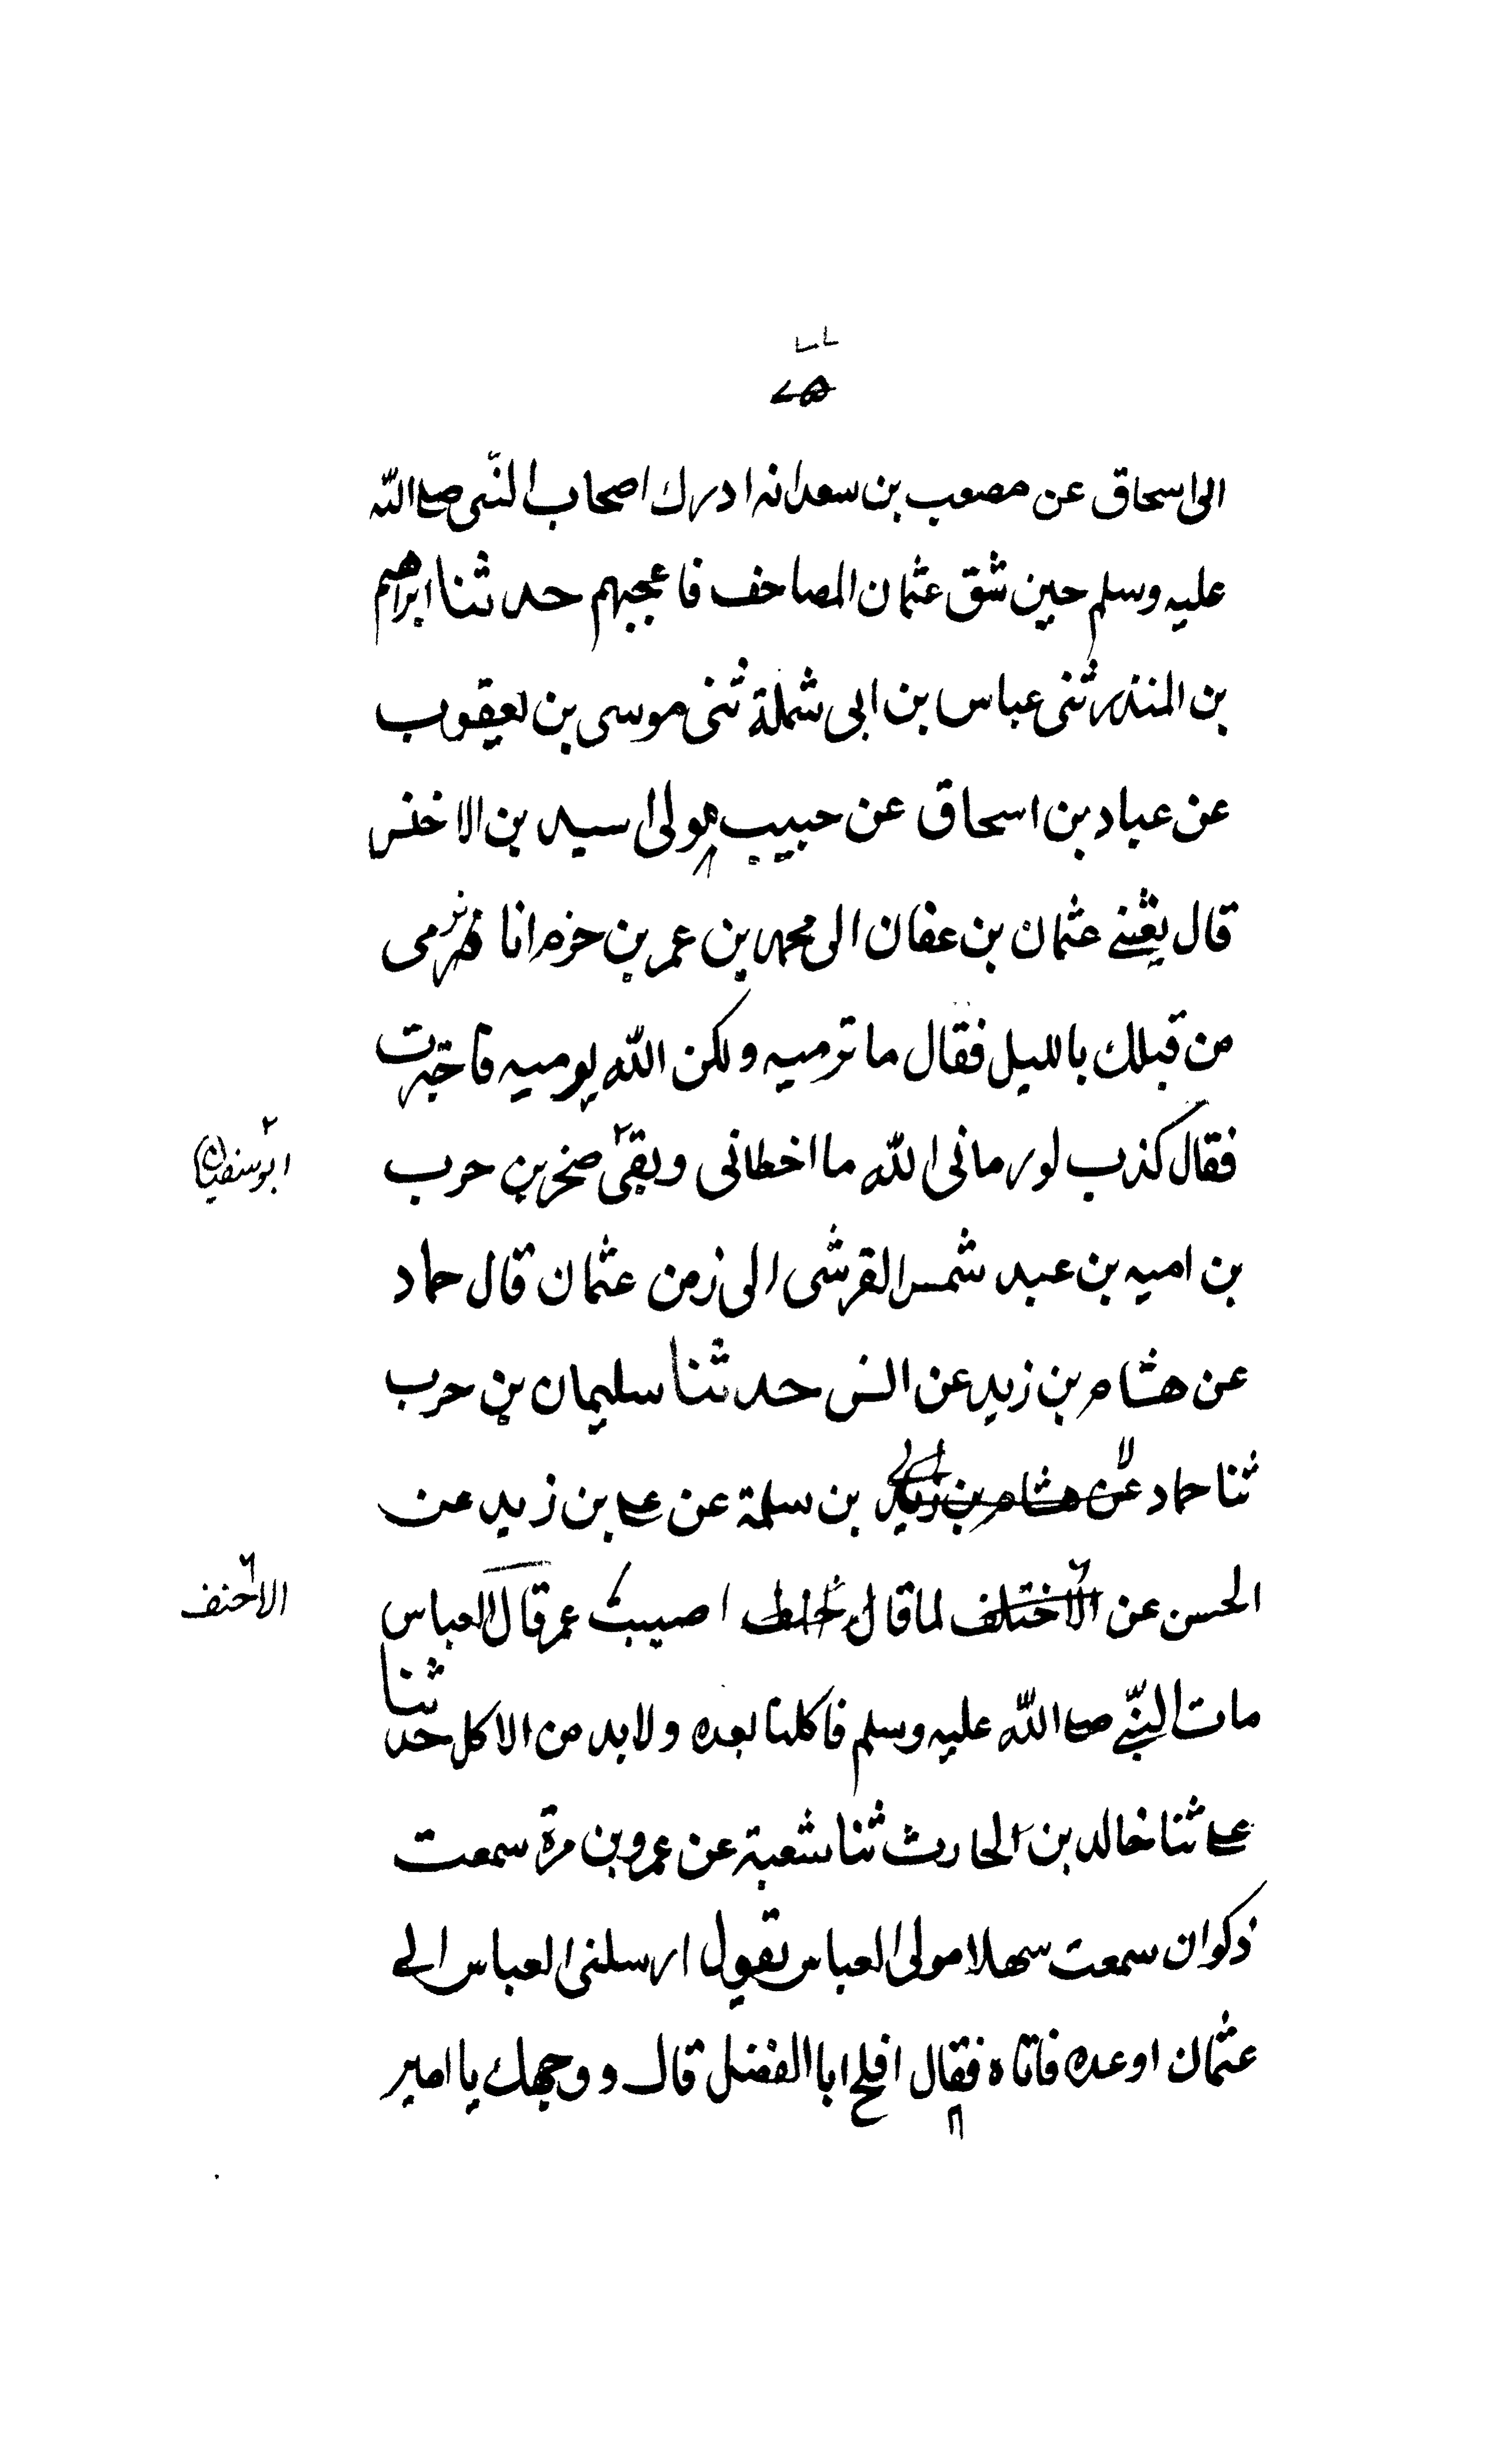 الى اسحاق عن مصعب بن سعد انه ادرك اصحاب النبى صلے الله
عليه وسلم حين شق عثمان المصاحف فاعجبهم حدثنا ابراهيم
بن المنذر ثنى عباس بن ابى شملة ثنى موسى بن يعقوب
عن عباد بن اسحاق عن حبيب مولى اسيد بن الاخنس
قال بعثنے عثمان بن عفان الى محمد بن عمر بن حزم انا نرمى
من قبلك بالليل فقال ما نرميه ولكن الله يرميه فاخبرت
فقال كذب لو رمانى الله ما اخطانى وبقى صخر بن حرب
ابو سفيان
بن اميه بن عبد شمس القرشى الى زمن عثمان قال حماد
عن هشام بن زيد عن انس حدثنا سليمان بن حرب
ثنا حماد عن هشام بن زيد بن سلمة عن علے بن زيد عن
الحسن عن الاختلف لما قال اصيب عمر قال العباس
الاحنف
مات النبے صلے الله عليه وسلم فاكلنا بعده ولا بد من الاكل حدثنا
علے ثنا خالد بن الحارث ثنا شعبة عن عمرو بن مرة سمعت
ذكوان سمعت سهلا مولى العباس يقول ارسلنى العباس الے
عثمان اوعده فاتاه فقال افلح ابا الفضل قال ووجهك يا امير